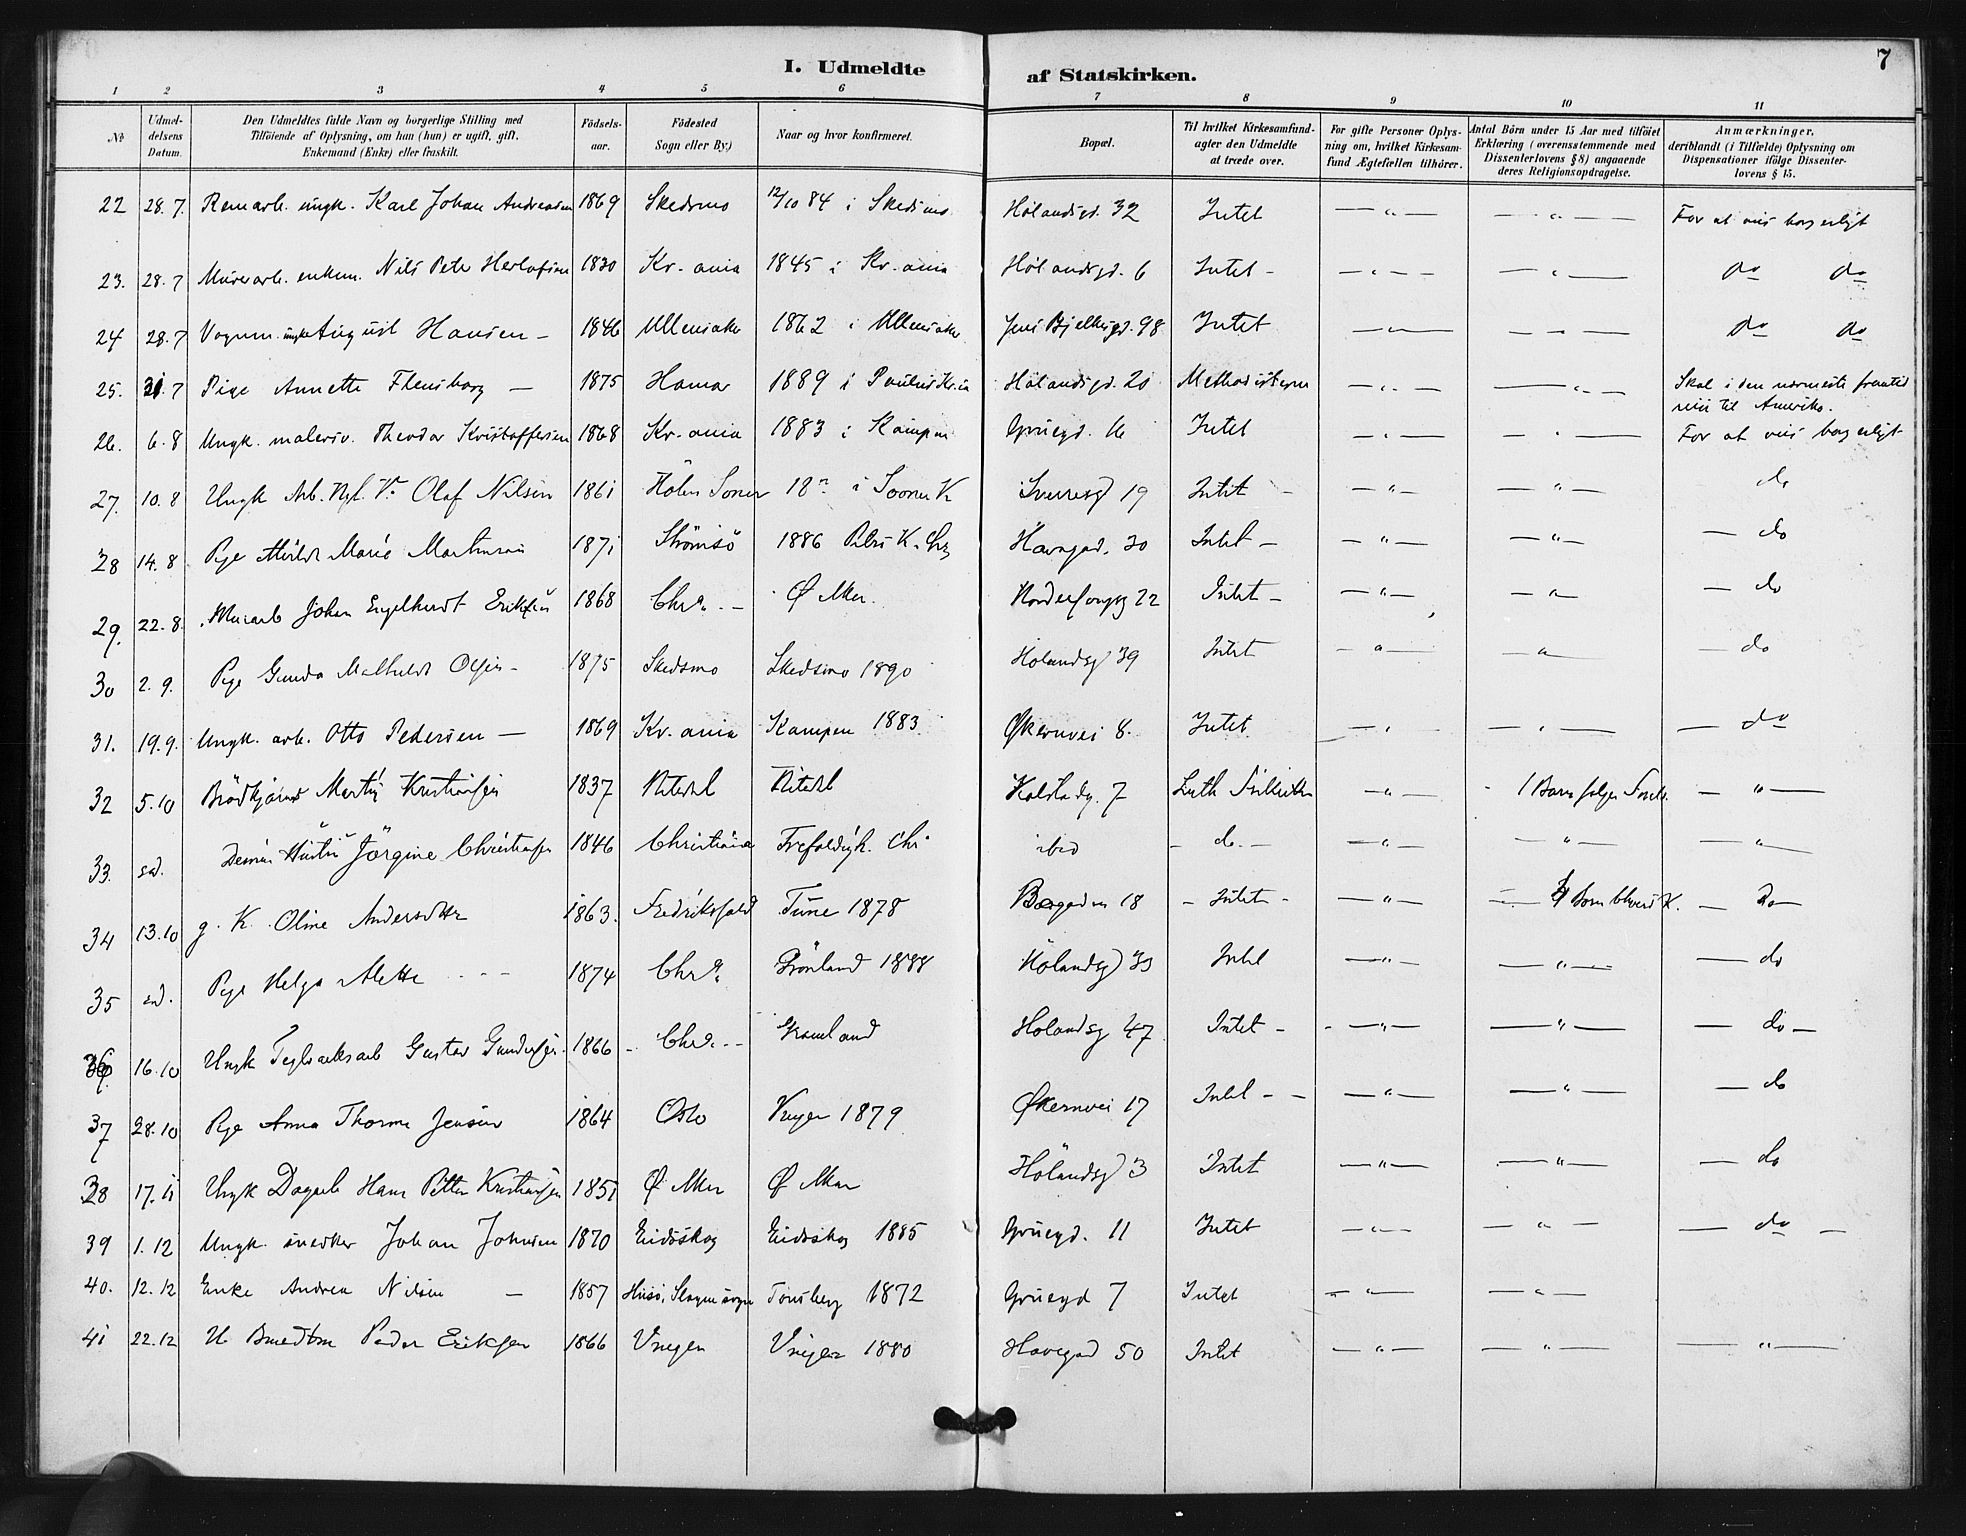 7
I. Udmeldte af Statskirken.
1 2 3 4 5 6 7 8 9 10 11
№ | Udmeldelsens Datum. | Den Udmeldtes fulde Navn og borgerlige Stilling med Tilföiende af Oplysning, om han (hun) er ugift, gift, Enkemand (Enke) eller fraskilt. | Födselsaar. | Födested Sogn eller By.) | Naar og hvor konfirmeret. | Bopæl. | Til hvilket Kirkesamfund agter den Udmeldte at træde over. | For gifte Personer Oplysning om, hvilket Kirkesamfund Ægtefællen tilhörer. | Antal Börn under 15 Aar med tilföiet Erklæring (overensstemmende med Dissenterlovens § 8) angaaende deres Religionsopdragelse. | Anmærkninger, deriblandt (i Tilfælde) Oplysning om Dispensationer ifölge Dissenterlovens § 15.
22 28.7. ungk. Karl Johan Andreasen 1869 Skedsmo 12/10 84 i Skedsmo Hölandsgd. 32 Intet — „ — — „ — For at vies borgerligt
23. 28.7 Murerarb. enkem. Nils Peter Herlofsen 1830 Kr.ania 1845 i Kr.ania Hölandsgd. 6 Intet — „ — — „ — do do
24 28.7 Vognm. ungk August Hansen 1846 Ullensaker 1862 i Ullensaker Jens Bjelkesgd. 98 Intet — „ — — „ — do do
25. 31.7 Pige Annette Flensborg — 1875 Hamar 1889 i Paulus Kr.ia Hölandsgd. 20 Methodisterne — „ — — „ — Skal i den nærmeste fremtid
reise til Amerika.
26. 6.8 Ungk. malersv. Theodor Kristoffersen 1868 Kr.ania 1883 i Kampen Gruegd. 16 Intet — „ — — „ — For at vies borgerligt
27. 10.8 Ungk Arb. Olaf Nilsen 1861 Hölen Soner 18 i Sooner K Sverresgd 19 Intet — „ — — „ — do
28 14.8 Pige Marie Martinsen 1871 Strömsö 1886 Petri K. Havegad. 30 Intet — — „ — — „ — — do
29. 22.8. Murarb Johan Engelhardt Eriksen 1868 Chra. — Ø Aker. 22 Intet — — „ — — „ — — do
30 2.9. Pige Gunda Mathilde Olsen 1875 Skedsmo Skedsmo 1890 Hölandsg 39 Intet — „ — — „ — — do
31. 19.9. Ungk. arb. Otto Pedersen — 1869 Kr.ania Kampen 1883 Økernvei 8. Intet — „ — — „ — — do
32 5.10 Brödkjörer Martin Kristiansen 1837 Nitedal Nitedal Kolstadg. 7 Luth Frikirke — „ — 1 Barn fölger — „ —
33. sd. Dennes Hustru Jörgine Christiansen 1846 Christiania Trefoldigh. Chr ibid — do. — — „ — — „ — — „ —
34 13.10 g. K. Oline Andersdtr 1863. Fredrikshald Tune 1878 18 — Intet — — „ — 4 Börn K. — Do —
35 sd. Pige Helga Alette 1874 Chra. Grönland 1888 Hölandsg 33 Intet — „ — — „ — — do
36 16.10 Ungk Teglverksarb Gustav Gundersen 1866 — Chra. — Grönland Hölandsg 47 Intet — — „ — — „ — — do —
37 28.10 Pige Anna Thorine Jensen 1864 Oslo Vaaler 1879 Økernvei 17 Intet — — — „ — — „ — — do
38 17.11 Ungk Dagarb Hans Petter Kristiansen 1851 Ø Aker Ø Aker Hölandsg 3 Intet — „ — — „ — — do
39 1.12 Ungk. snedker Johan Johnsen 1870 Eidsskog Eidsskog 1885 Gruegd. 11 Intet — „ — — „ — — do —
40. 12.12 Enke Andrea Nilsen — 1857 Husö, Slagen sogn Tönsberg 1872 Gruegd 7 Intet — „ — — „ —
41 22.12 Peder Eriksen 1866 Vinger Vinger 1880 Havegad 50 Intet — „ — — „ — — „ —